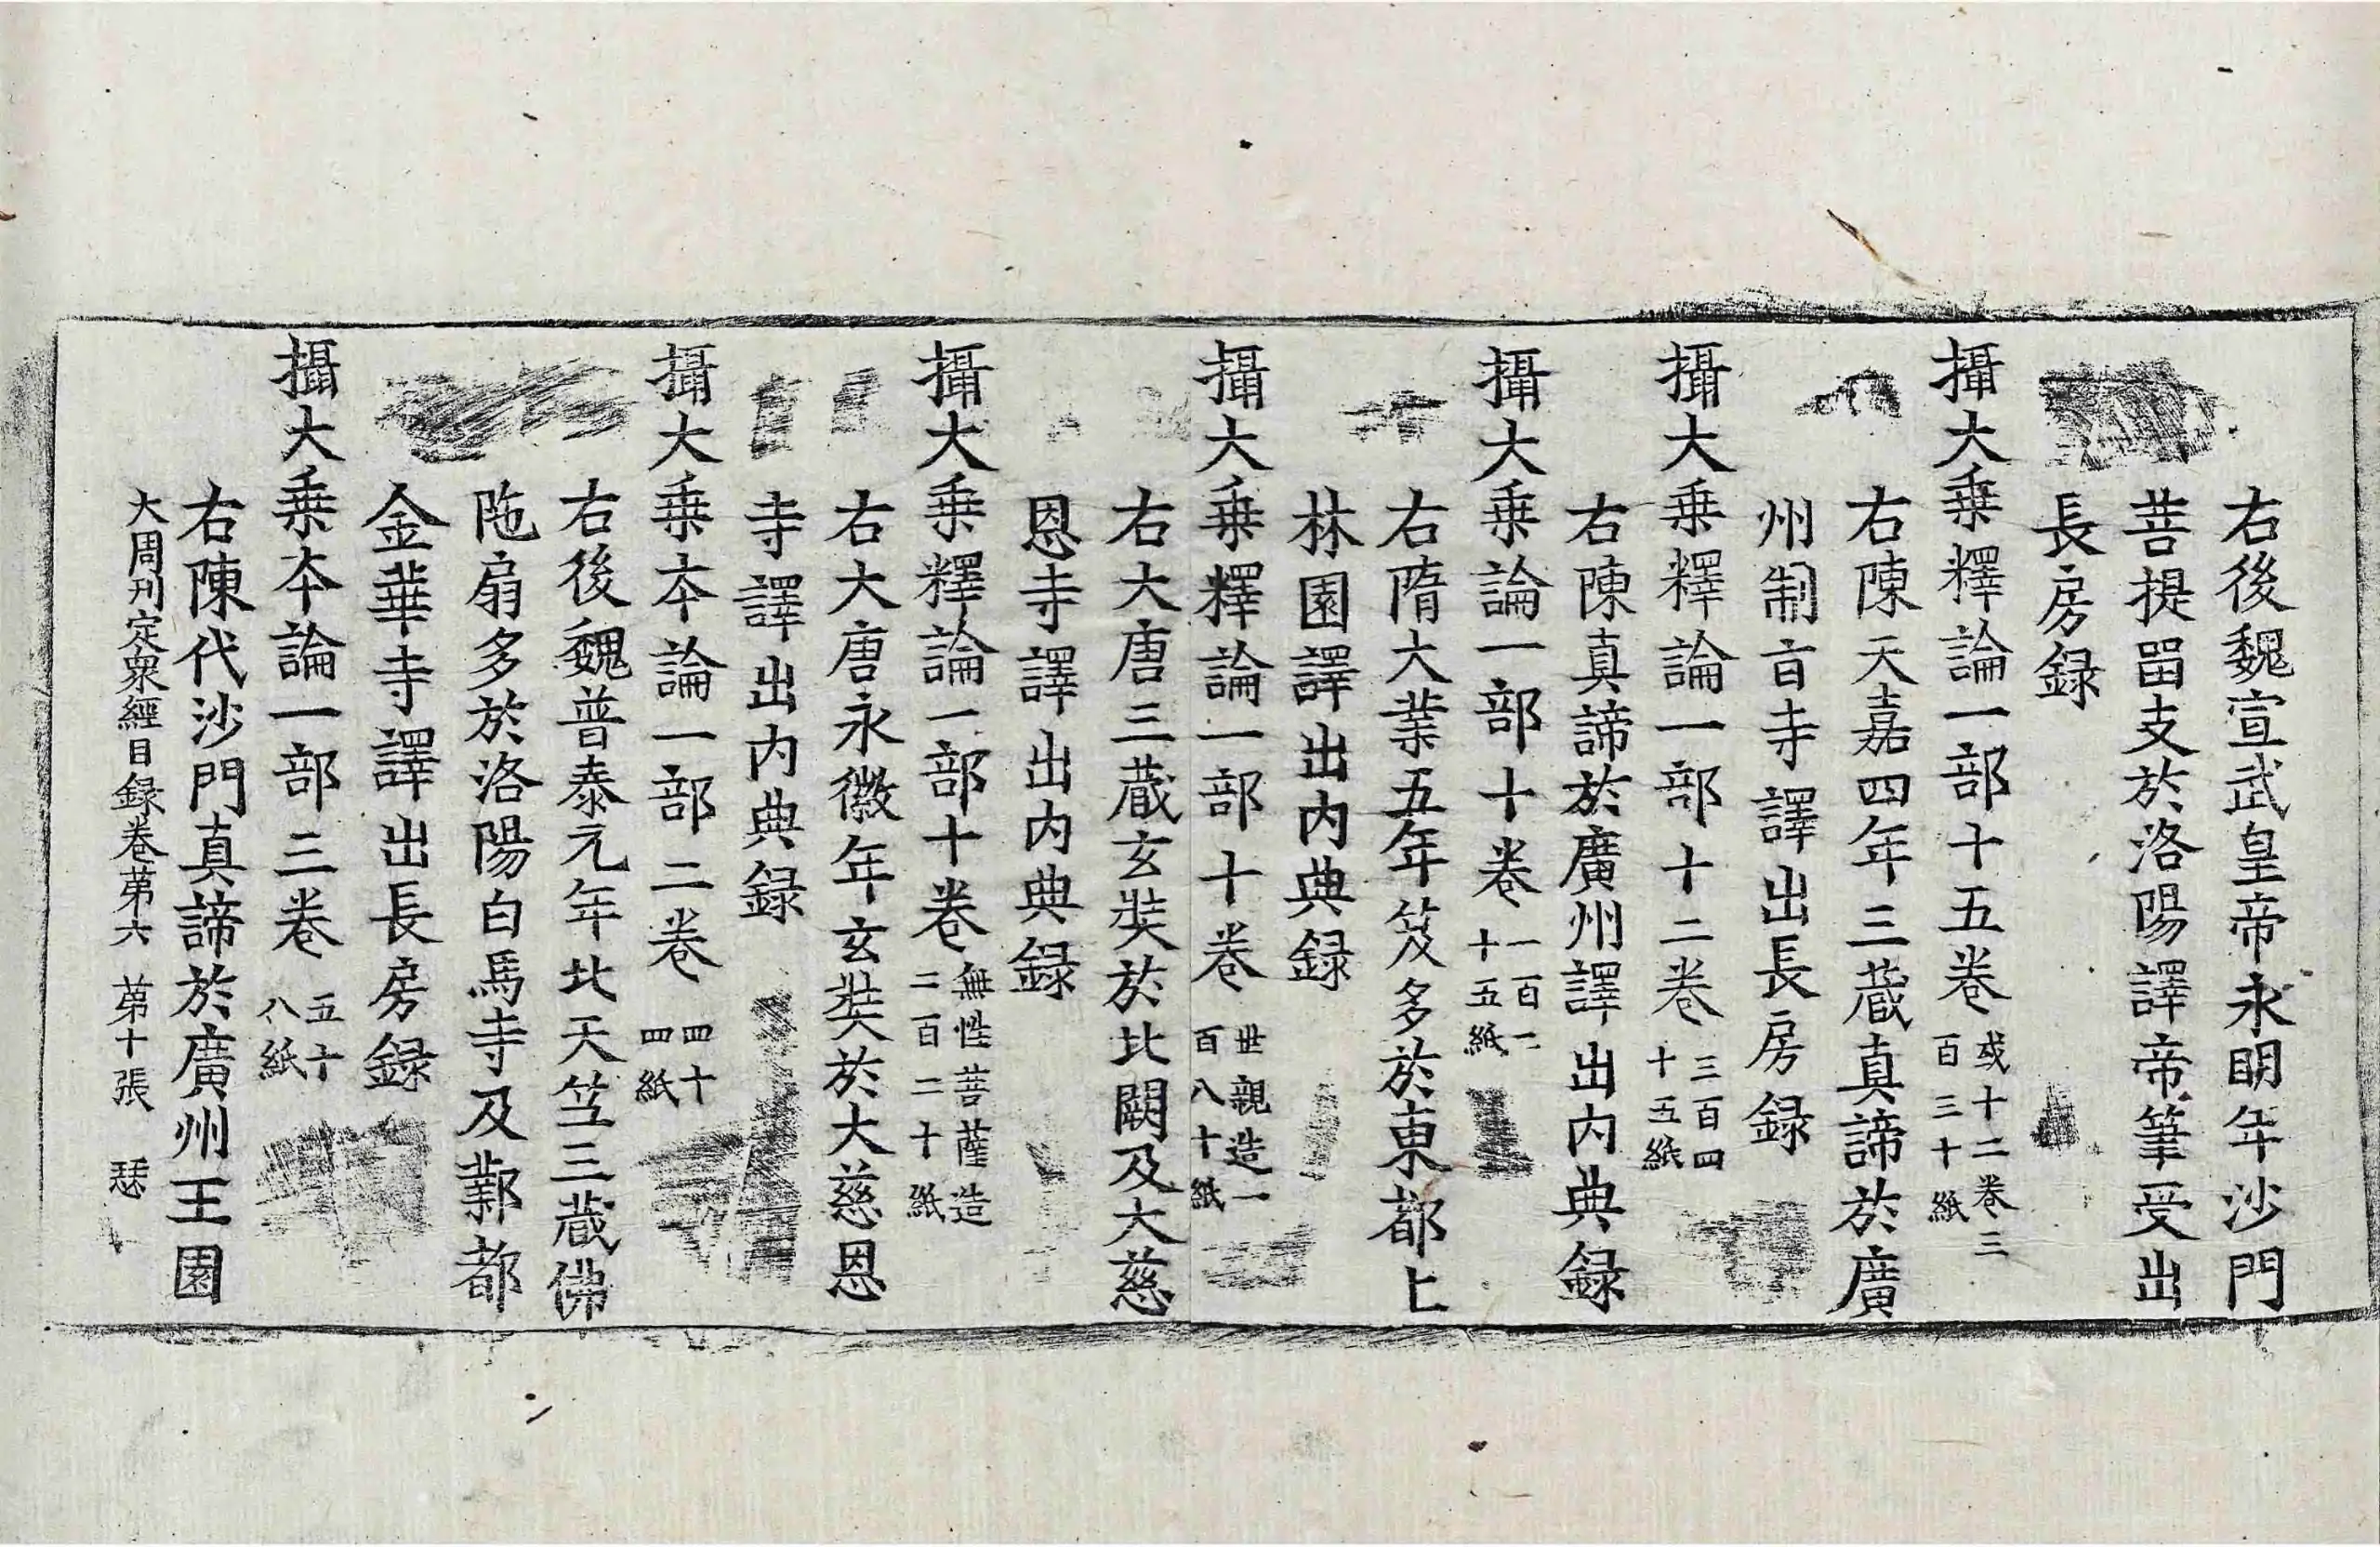 右後魏宣武皇帝永明年沙門
菩提留支於洛陽譯帝筆受出
長房録
攝大乗釋論一部十五卷或十二卷三百三十紙
右陳天嘉四年三蔵真諦於廣
州制㫖寺譯出長房録
攝大乗釋論一部十二卷三百四十五紙
右陳真諦於廣州譯出内典録
攝大乗論一部十卷一百二十五紙
右隋大業五年笈多於東都上
林園譯出内典録
攝大乗釋論一部十卷世親造一百八十紙
右大唐三蔵玄奘於北闕及大慈
恩寺譯出内典録
攝大乗釋論一部十卷無性菩薩造二百二十紙
右大唐永徽年玄奘於大慈恩
寺譯出内典録
攝大乗本論一部二卷四十四紙
右後魏普泰元年北天笁三蔵佛
陁扇多於洛陽白馬寺及鄴都
金華寺譯出長房録
攝大乗本論一部三卷五十八紙
右陳代沙門真諦於廣州王園
大周刊定衆經目録卷苐六 苐十張